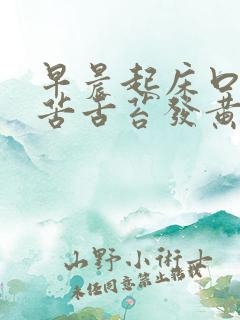 早晨起床口
苦舌苔發黃
山野小術士
未經同意禁止轉載